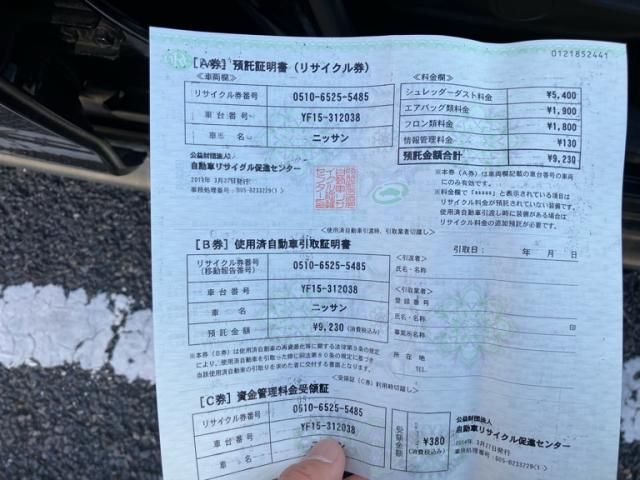 0121852441
[A券] 預託証明書 (リサイクル券)
<車両欄>
リサイクル券番号 0510-6525-5485
車台番号 YF15-312038
車名 ニッサン
公益財団法人
自動車リサイクル促進センター
<料金欄>
シュレッダーダスト料金 ¥5,400
エアバッグ類料金 ¥1,900
フロン類料金 ¥1,800
情報管理料金 ¥130
預託金額合計 ¥9,230
※本券(A券)は車両欄記載の車台番号の車両
にのみ有効です。
※料金欄で「*****」と表示されている項目は
リサイクル料金が預託されていない装備です。
使用済自動車引渡し時に装備がある場合は
リサイクル料金の追加預託が必要です。
<使用済自動車引渡時、引取業者切離し>
[B券] 使用済自動車引取証明書
リサイクル券番号
(移動報告番号) 0510-6525-5485
車台番号 YF15-312038
車名 ニッサン
預託金額 ¥9,230 (消費税込み)
※本券(B券)は使用済自動車の再資源化等に関する法律第9条の規定
により、使用済自動車を引取った際に同法第80条の規定に基づき
当該使用済自動車の引取りを求めた者に交付する書面となります。
引取日: 年 月 日
<引渡者>
氏名・名称
<引取業者>
登録番号
氏名・名称 印
事業所名称
所在地
TEL.
<受領証(C券)利用時切離し>
[C券] 資金管理料金受領証
リサイクル券番号 0510-6525-5485
車台番号 YF15-312038
車名 ニッサン
受領金額 ¥380
(消費税込み)
公益財団法人
自動車リサイクル促進センター